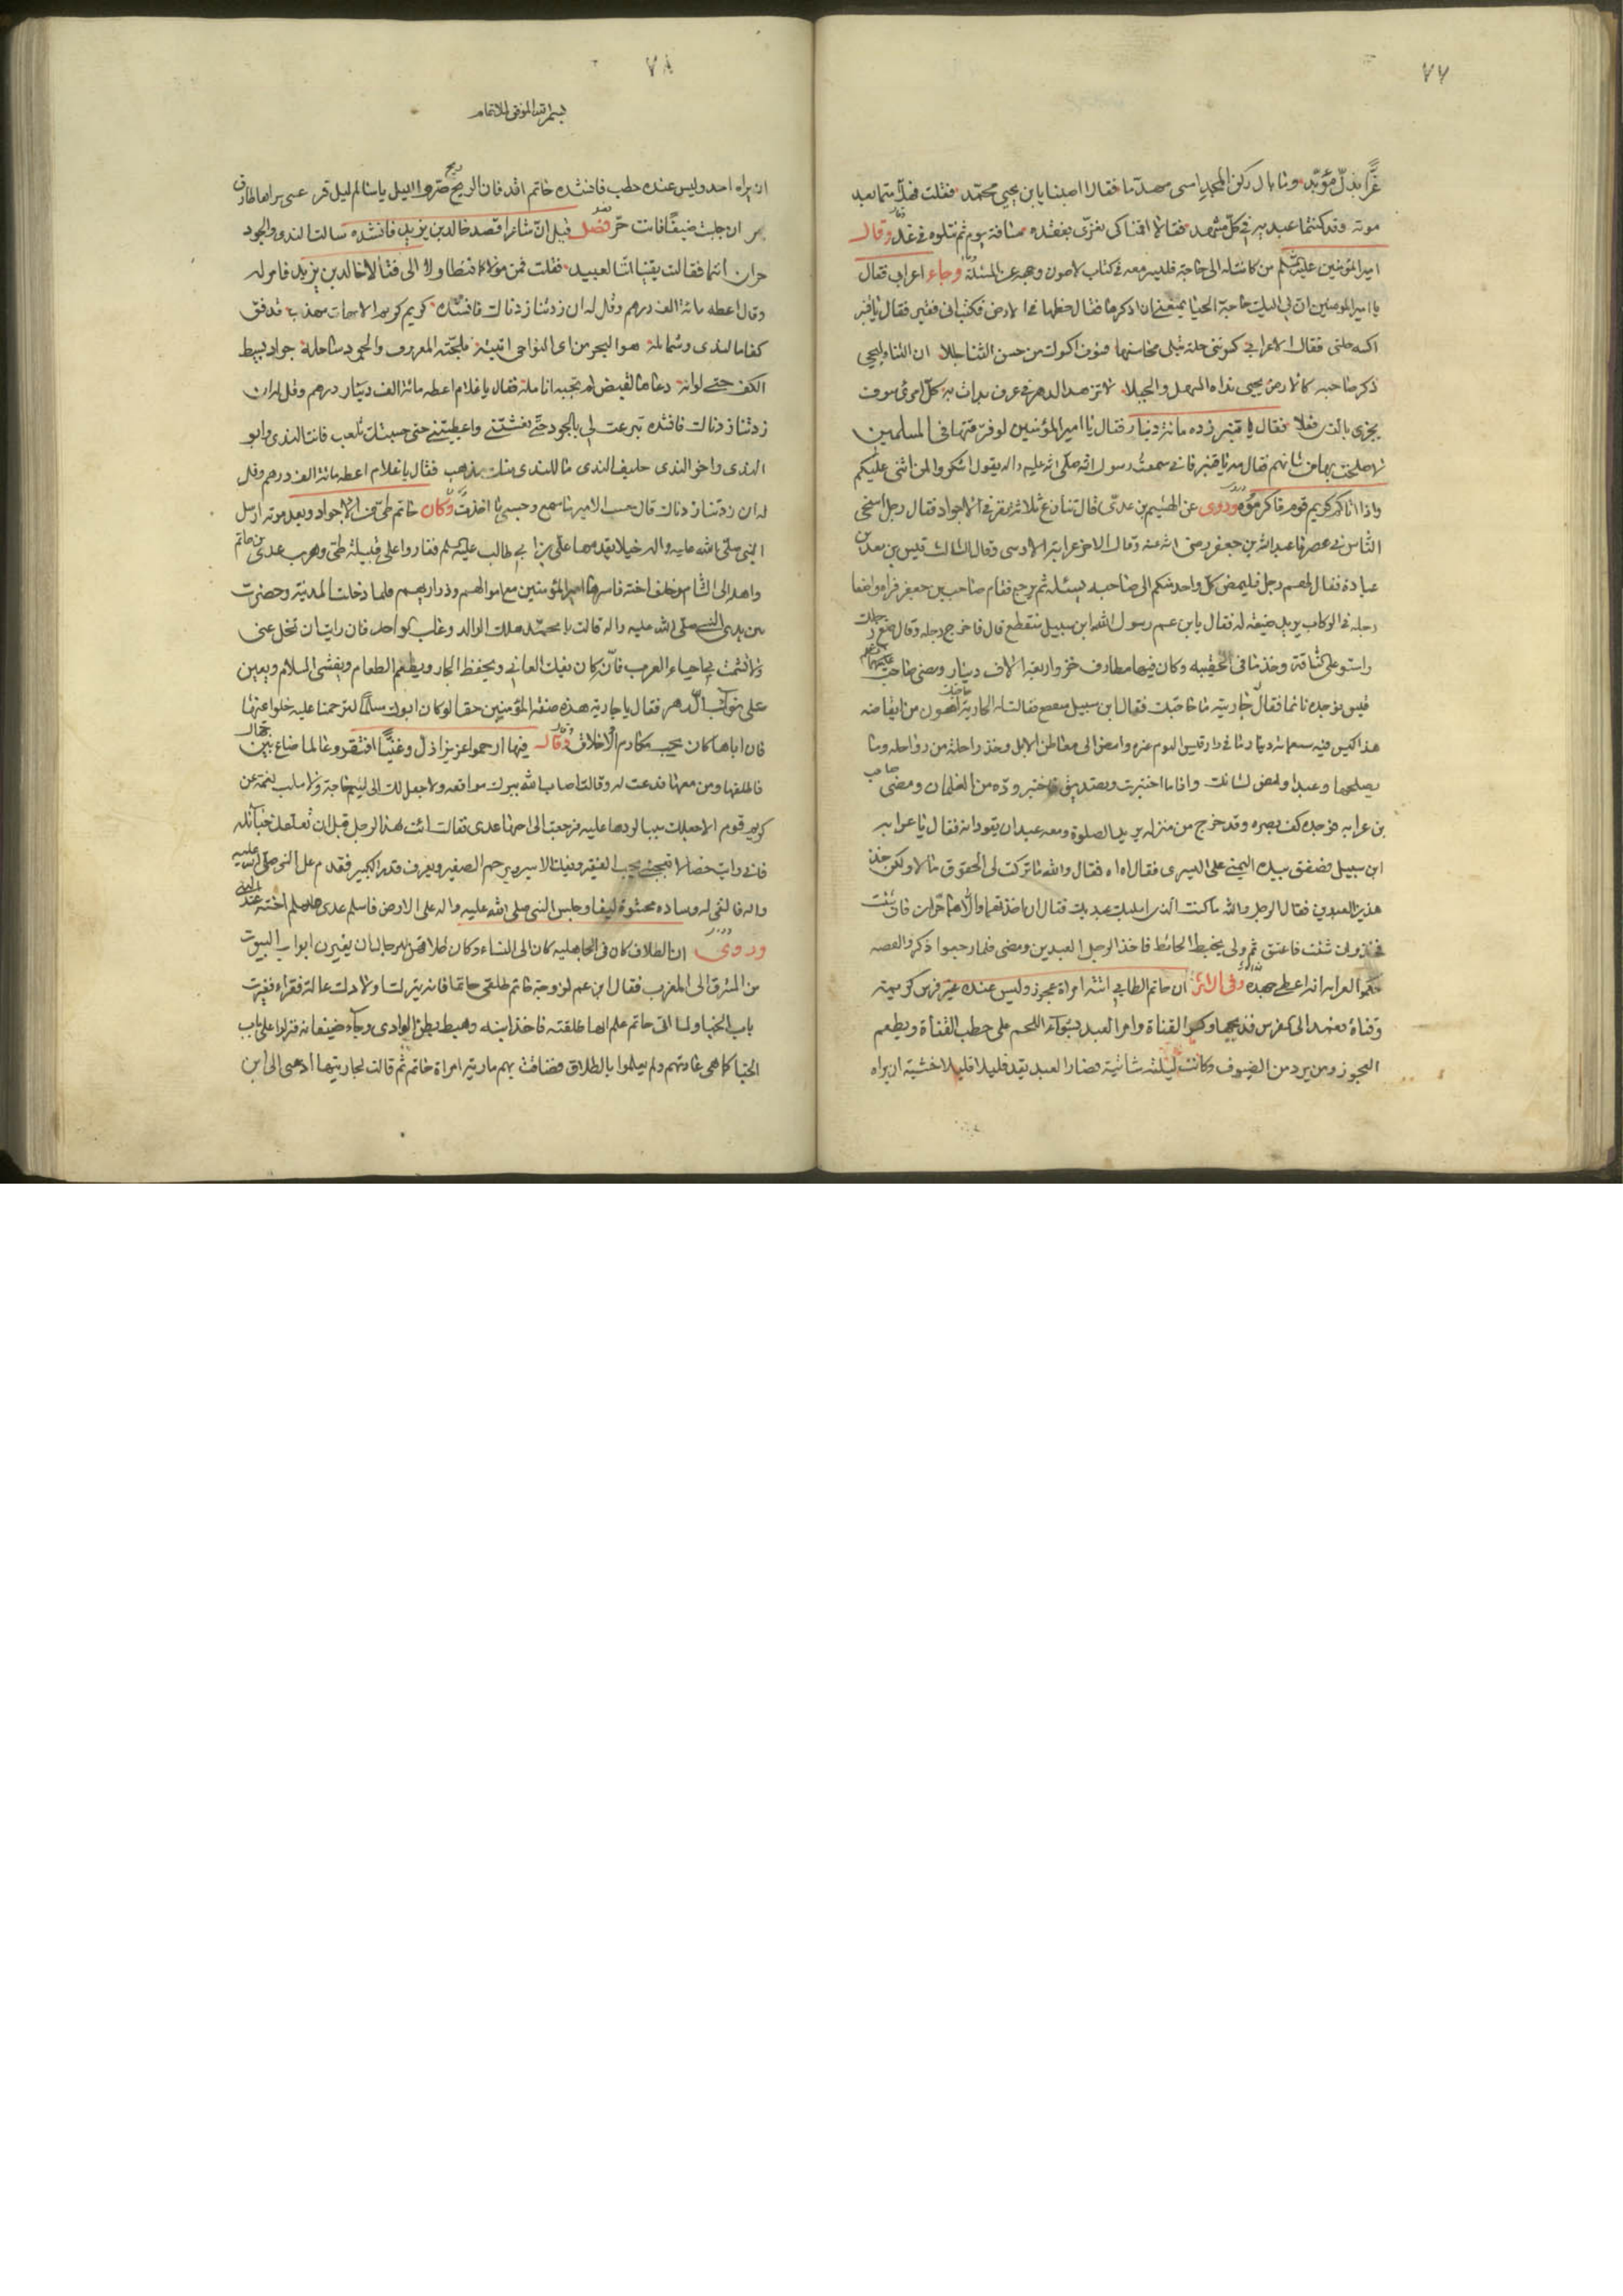 ٧٧
عزا بذل مؤبد وما بال ركن المجد امسى مهدما فقالا اصبنا يابن يحيى محمد فقلت فهلا متما بعد
موته وقد كنتما عبديه في كل مشهد فقالا اقمنا كى نعزى بفقده مسافة يوم ثم نتلوه في غد وقال
امير المؤمنين عليه السلم من كانت له الى حاجة فليرفعها في كتاب لاصون وجهه عن المسئلة وجاء اعرابي فقال
يا امير المؤمنين ان لي اليك حاجة الحيا يمنعني ان اذكرها فقال خطها في الارض فكتب اني فقير فقال يا قنبر
اكسه حلتي فقال الاعرابي كسوتني حلة تبلى محاسنها فسوف اكسوك من حسن الثنا حللا ان الثناء ليحيي
ذكر صاحبه كالارض يحيى نداه السهل والجبلا لا تزهد الدهر في عرف بدات به كل امرئ سوف
يجزى بالذى فعلا فقال يا قنبر زده مائة دينار فقال يا امير المؤمنين لو فرقتها في المسلمين
لاصلحت بها من شانهم فقال مه يا قنبر فاني سمعت رسول الله صلى الله عليه واله يقول اشكروا لمن اثنى عليكم
واذا اتاكم كريم قوم فاكرموه وروى عن الهيثم بن عدى قال تنازع ثلاثة نفر في الاجواد فقال رجل اسخى
الناس في عصرنا عبدالله بن جعفر رضى الله عنه وقال الاخر عرابة الاوسى وقال الثالث قيس بن سعد بن
عبادة فقال لهم رجل فليمض كل واحد منكم الى صاحبه يسئله ثم يرجع فقام صاحب بن جعفر فراه واضعا
رجله في الركاب يريد ضيعة له فقال يابن عم رسول الله ابن سبيل منقطع قال فاخرج رجله وقال ضع رجلك
واستو على الناقة وخذ ما في الحقيبه وكان فيها مطارف خز واربعة الاف دينار ومضى صاحب
قيس فوجده نائما فقال جاريته ما حاجتك فقال ابن سبيل منقطع فقالت له الجارية حاجتك اهون من ايقاضه
هذا كيس فيه سبعمائة دينار ما في دار قيس اليوم غيره وامض الى معاطن الابل وخذ راحلة من رواحله وما
يصلحها وعبدا وامض لشانك
بن عرابه فوجده كف بصره وقد خرج من منزله يريد الصلوة ومعه عبدان يقودانه فقال يا عرابه
ابن سبيل فصفق بيده اليمنى على اليسرى فقال اه اه فقال والله ما تركت لى الحقوق مالا ولكن خذ
هذين العبدين فقال الرجل والله ما كنت الذى اسلبك عبديك فقال ان اخذتهما والا هما حران فان شئت
فخذ وان شئت فاعتق ثم ولى يخبط الحائط فاخذ الرجل العبدين ومضى فلما رجعوا ذكروا القصه
حكموا لعرابه انه اعطى جهده وفي الاثر ان حاتم الطايي اتته امراة عجوز وليس عنده غير فرس كريمة
وقناة فعمد الى الفرس فذبحها وكسر القناة وامر العبد بشوآء اللحم على حطب القناة ويطعم
العجوز ومن يرد من الضيوف وكانت ليلته شاتية فصار العبد يقد قليلا قليلا خشية ان يراه
٧٨
بسم الله الموفق للاتمام
ان يراه احد وليس عنده حطب فانشده حاتم اوقد فان الريح ريح صر والليل ياسالم ليل قر عسى يراها طارق
يمر ان جلبت ضيفا فانت حر فصل قيل ان شاعرا قصد خالد بن يزيد فانشده سالت الندى والجود
حران انتما فقالت يقينا اننا لعبيد فقلت فمن مولاكما فتطاولا الى فقالا خالد بن يزيد فامر له
وقال اعطه مائة الف درهم وقل له ان زدتنا زدناك فانشده كريم كريم الامهات مهذب تدفق
كفاه الندى وشمائله هو البحر من اى النواحى اتيته فلجته المعروف والجود ساحله جواد بسيط
الكف حتى لو انه دعاها لقبض لم تجبه انامله فقال يا غلام اعطه مائة الف دينار درهم وقل له ان
زدتنا زدناك فانشده تبرعت لي بالجود حتى نعشتني واعطيتني حتى حسبتك تلعب فانت الندى وابو
الندى واخو الندى حليف الندى ما للندى عنك مذهب فقال يا غلام اعطه مائة الف درهم وقل
له ان زدتنا زدناك قال حسب الامير ما سمع وحسبي ما اخذت وكان حاتم طى من الاجواد وبعد موته ارسل
النبى صلى الله عليه واله خيلا يقدمها على بن ابي طالب عليه السلم فغاروا على قبيلة طى وهرب عدى بن حاتم
واهله الى الشام وخلف اخته فاسرها امير المؤمنين مع اموالهم وذراريهم فلما دخلت المدينة وحضرت
بين يدى النبى صلى الله عليه واله قالت يا محمد هلك الوالد وغاب الوافد فان رايت ان تخل عنى
ولا تشمت بي احياء العرب فان ابي كان يفك العاني ويحفظ الجار ويطعم الطعام ويفشى السلام ويعين
على نوائب الدهر فقال يا جارية هذه صفة المؤمنين حقا لو كان ابوك مسلما لترحمنا عليه خلوا عنها
فان اباها كان يحب مكارم الاخلاق وقال فيها ارحموا عزيزا ذل وغنيا افتقر وعالما ضاع بين جهال
فاطلقها ومن معها فدعت له وقالت اصاب الله ببرك مواقعه ولا جعل لك الى لئيم حاجة ولا سلب نعمة عن
كريم قوم الا جعلك سببا لردها عليه فرجعت الى اخيها عدى فقالت ائت هذا الرجل قبل ان تعلقك حبائله
فاني رايت خصالا تعجبني يحب الفقير ويفك الاسير ويرحم الصغير ويعرف قدر الكبير فقدم على النبى صلى الله عليه
واله فالقى له وساده محشوة ليفا وجلس النبى صلى الله عليه واله على الارض فاسلم عدى واسلم اخته
وروى ان الطلاق كان في الجاهليه كان الى النساء وكان طلاقهن للرجال ان يغيرن ابواب البيوت
من المشرق الى المغرب فقال ابن عم لزوجة حاتم طلقى حاتما فانه يترك اولادك عالة فقراء فغيرت
باب الخبا ولما اتى حاتم علم انها طلقته فاخذ ابنه وهبط بطن الوادى وجآء ضيفانه فنزلوا على باب
الخبا كما هى عادتهم ولم يعلموا بالطلاق فضاقت بهم مارية امراة حاتم ثم قالت لجاريتها اذهبى الى ابن